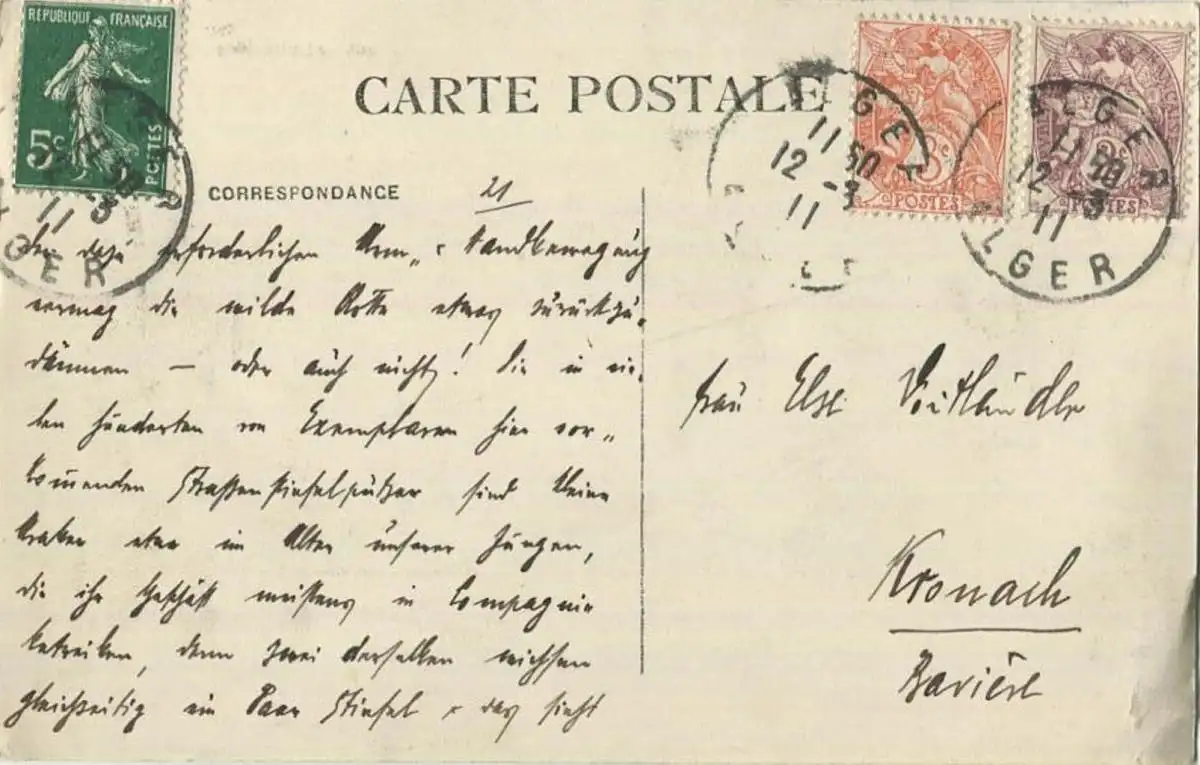 REPUBLIQUE FRANÇAISE
5c
POSTES
CARTE POSTALE
CORRESPONDANCE
21
ALGER
11 50
12 -3
11
ALGER
POSTES
POSTES
der dazu erforderlichen Arm- & Handbewegung
vermag die wilde Rotte etwas zurückzu-
dämmen — oder auch nicht! Die in vie-
len hunderten von Exemplaren hier vor-
kom̅enden Straßenstiefelputzer sind kleine
Araber etwa im Alter unserer Jungen,
die ihr Geschäft meistens in Compagnie
betreiben, denn zwei derselben wichsen
gleichzeitig ein Paar Stiefel & das sieht
Frau Else Voitländer
Kronach
Bavière